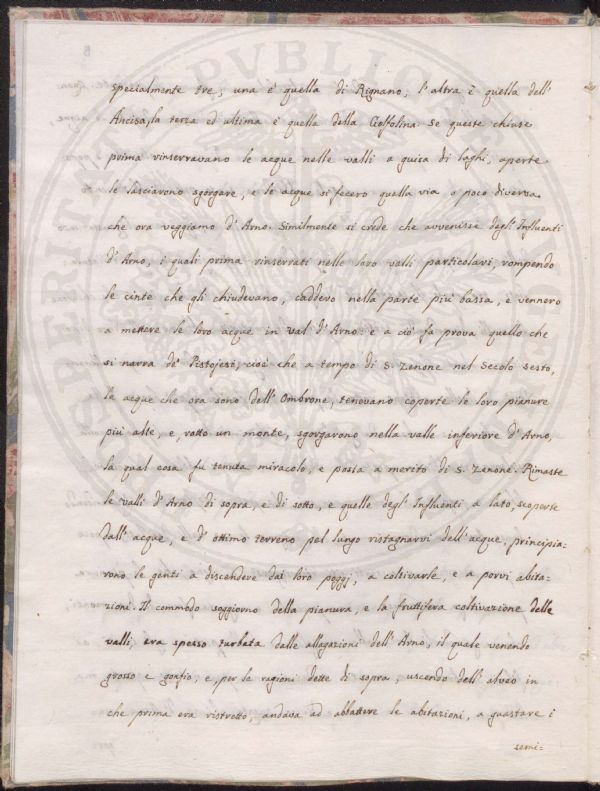 specialmente tre; una è quella di Rignano, l'altra è quella dell'
Ancisa, la terza ed ultima è quella della Golfolina. Se queste chiuse
prima rinserravano le acque nelle valli a guisa di laghi, aperte
le lasciarono sgorgare, e le acque si fecero quella via o poco diversa
che ora veggiamo d'Arno. Similmente si crede che avvenisse degl'Influenti
d'Arno, i quali prima rinserrati nelle loro valli particolari, rompendo
le cinte che gli chiudevano, caddero nella parte più bassa, e vennero
a mettere le loro acque in Val d'Arno: e a ciò fa prova quello che
si narra de' Pistojesi, cioè che a tempo di S. Zenone nel Secolo sesto,
le acque che ora sono dell'Ombrone, tenevano coperte le loro pianure
più alte, e, rotto un monte, sgorgarono nella valle inferiore d'Arno,
la qual cosa fu tenuta miracolo, e posta a merito di S. Zenone. Rimaste
le valli d'Arno di sopra, e di sotto, e quelle degl'Influenti a lato, scoperte
dall'acque, e d'ottimo terreno pel lungo ristagnarvi dell'acque, principia=
rono le genti a discendere dai loro poggj, a coltivarle, e a porvi abita=
zioni. Il commodo soggiorno della pianura, e la fruttifera coltivazione delle
valli, era spesso turbata dalle allagazioni dell'Arno, il quale venendo
grosso e gonfio, e, per le ragioni dette di sopra, uscendo dell'alveo in
che prima era ristretto, andava ad abbattere le abitazioni, a guastare i
semi=